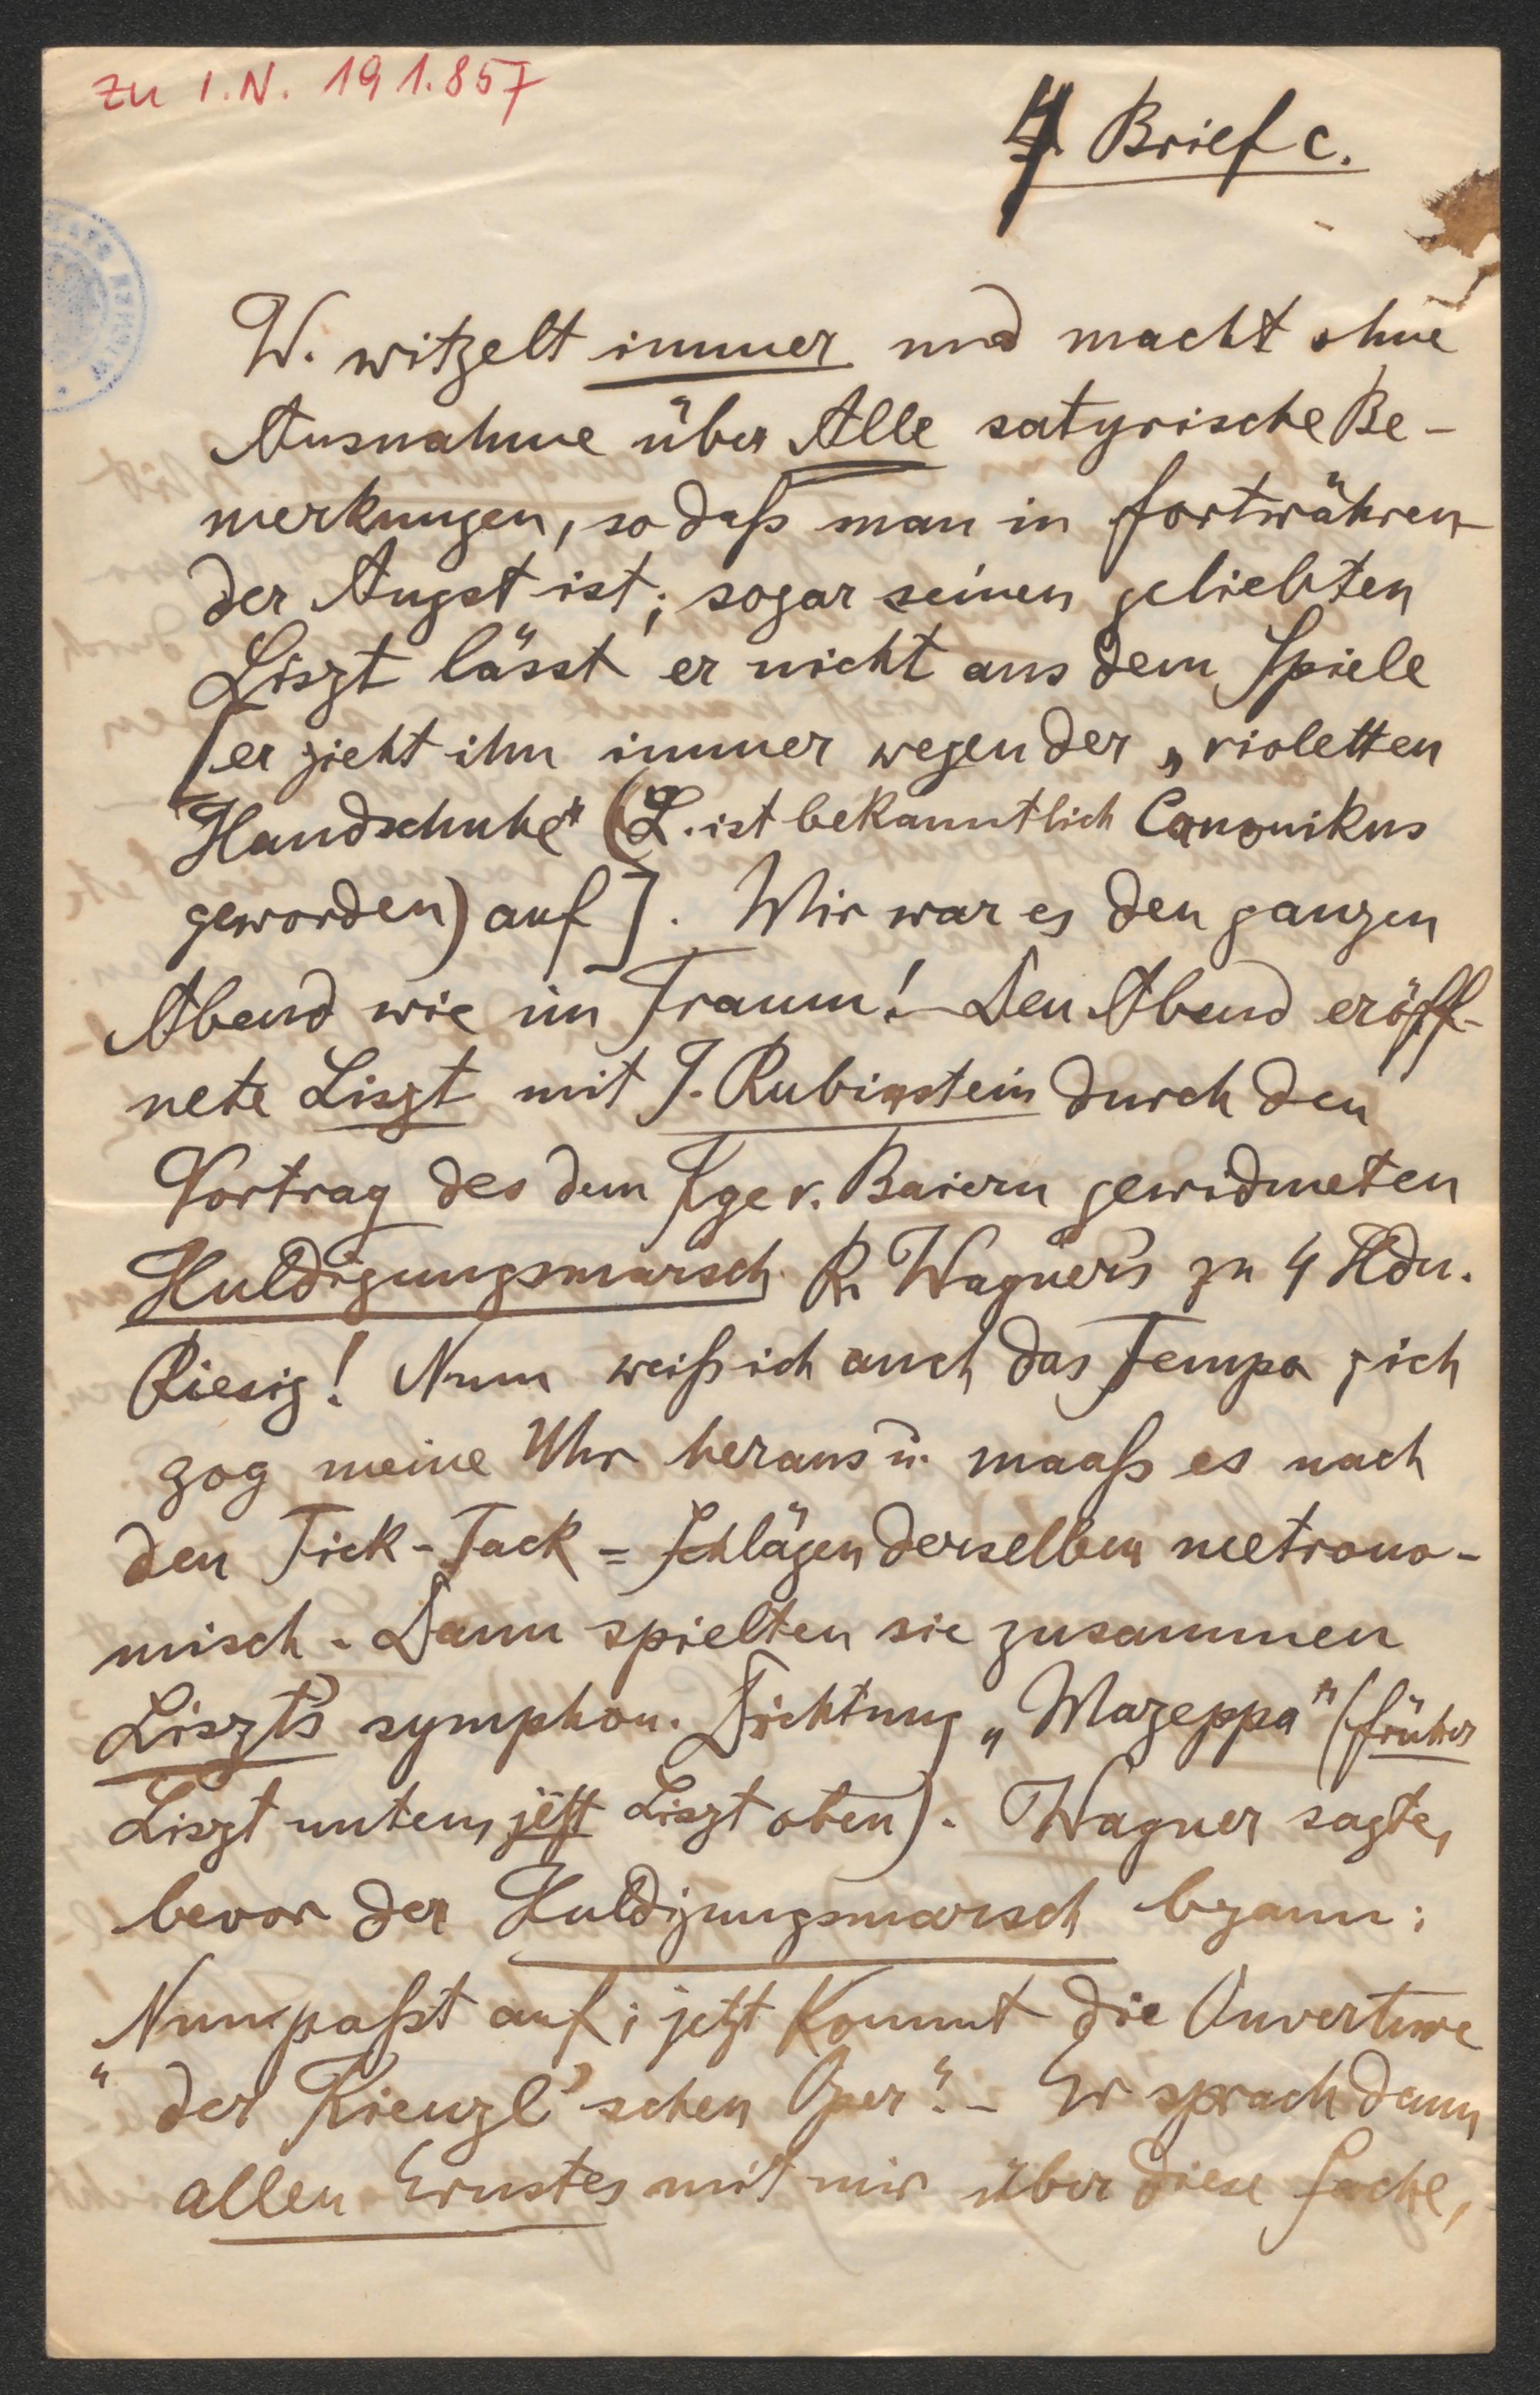 zu I.N. 191.857
4 Brief c.
W. witzelt immer und macht ohne
Ausnahme über Alle satyrische Be-
merkungen, so daß man in fortwähren-
der Angst ist; sogar seinen geliebten
Liszt lässt er nicht aus dem Spiele
[er zieht ihn immer wegen der „violetten
Handschuhe“ (L. ist bekanntlich Canonikus
geworden) auf]. Mir war es den ganzen
Abend wie im Traum! Den Abend eröff-
nete Liszt mit J. Rubinstein durch den
Vortrag des dem Kge v. Baiern gewidmeten
Huldigungsmarsch R. Wagner's zu 4 Hdn.
Riesig! Nun weiß ich auch das Tempo; ich
zog meine Uhr heraus u. maaß es nach
den Tick-Tack=Schlägen derselben metrono-
misch. Dann spielten sie zusammen
Liszt's symphon. Dichtung „Mazeppa“ (früher
Liszt unten, jetzt Liszt oben). Wagner sagte,
bevor der Huldigungsmarsch begann:
Nun paßt auf; jetzt kommt die Ouverture
„der Kienzl'schen Oper“. – Er sprach dann
allen Ernstes mit mir über diese Sache,